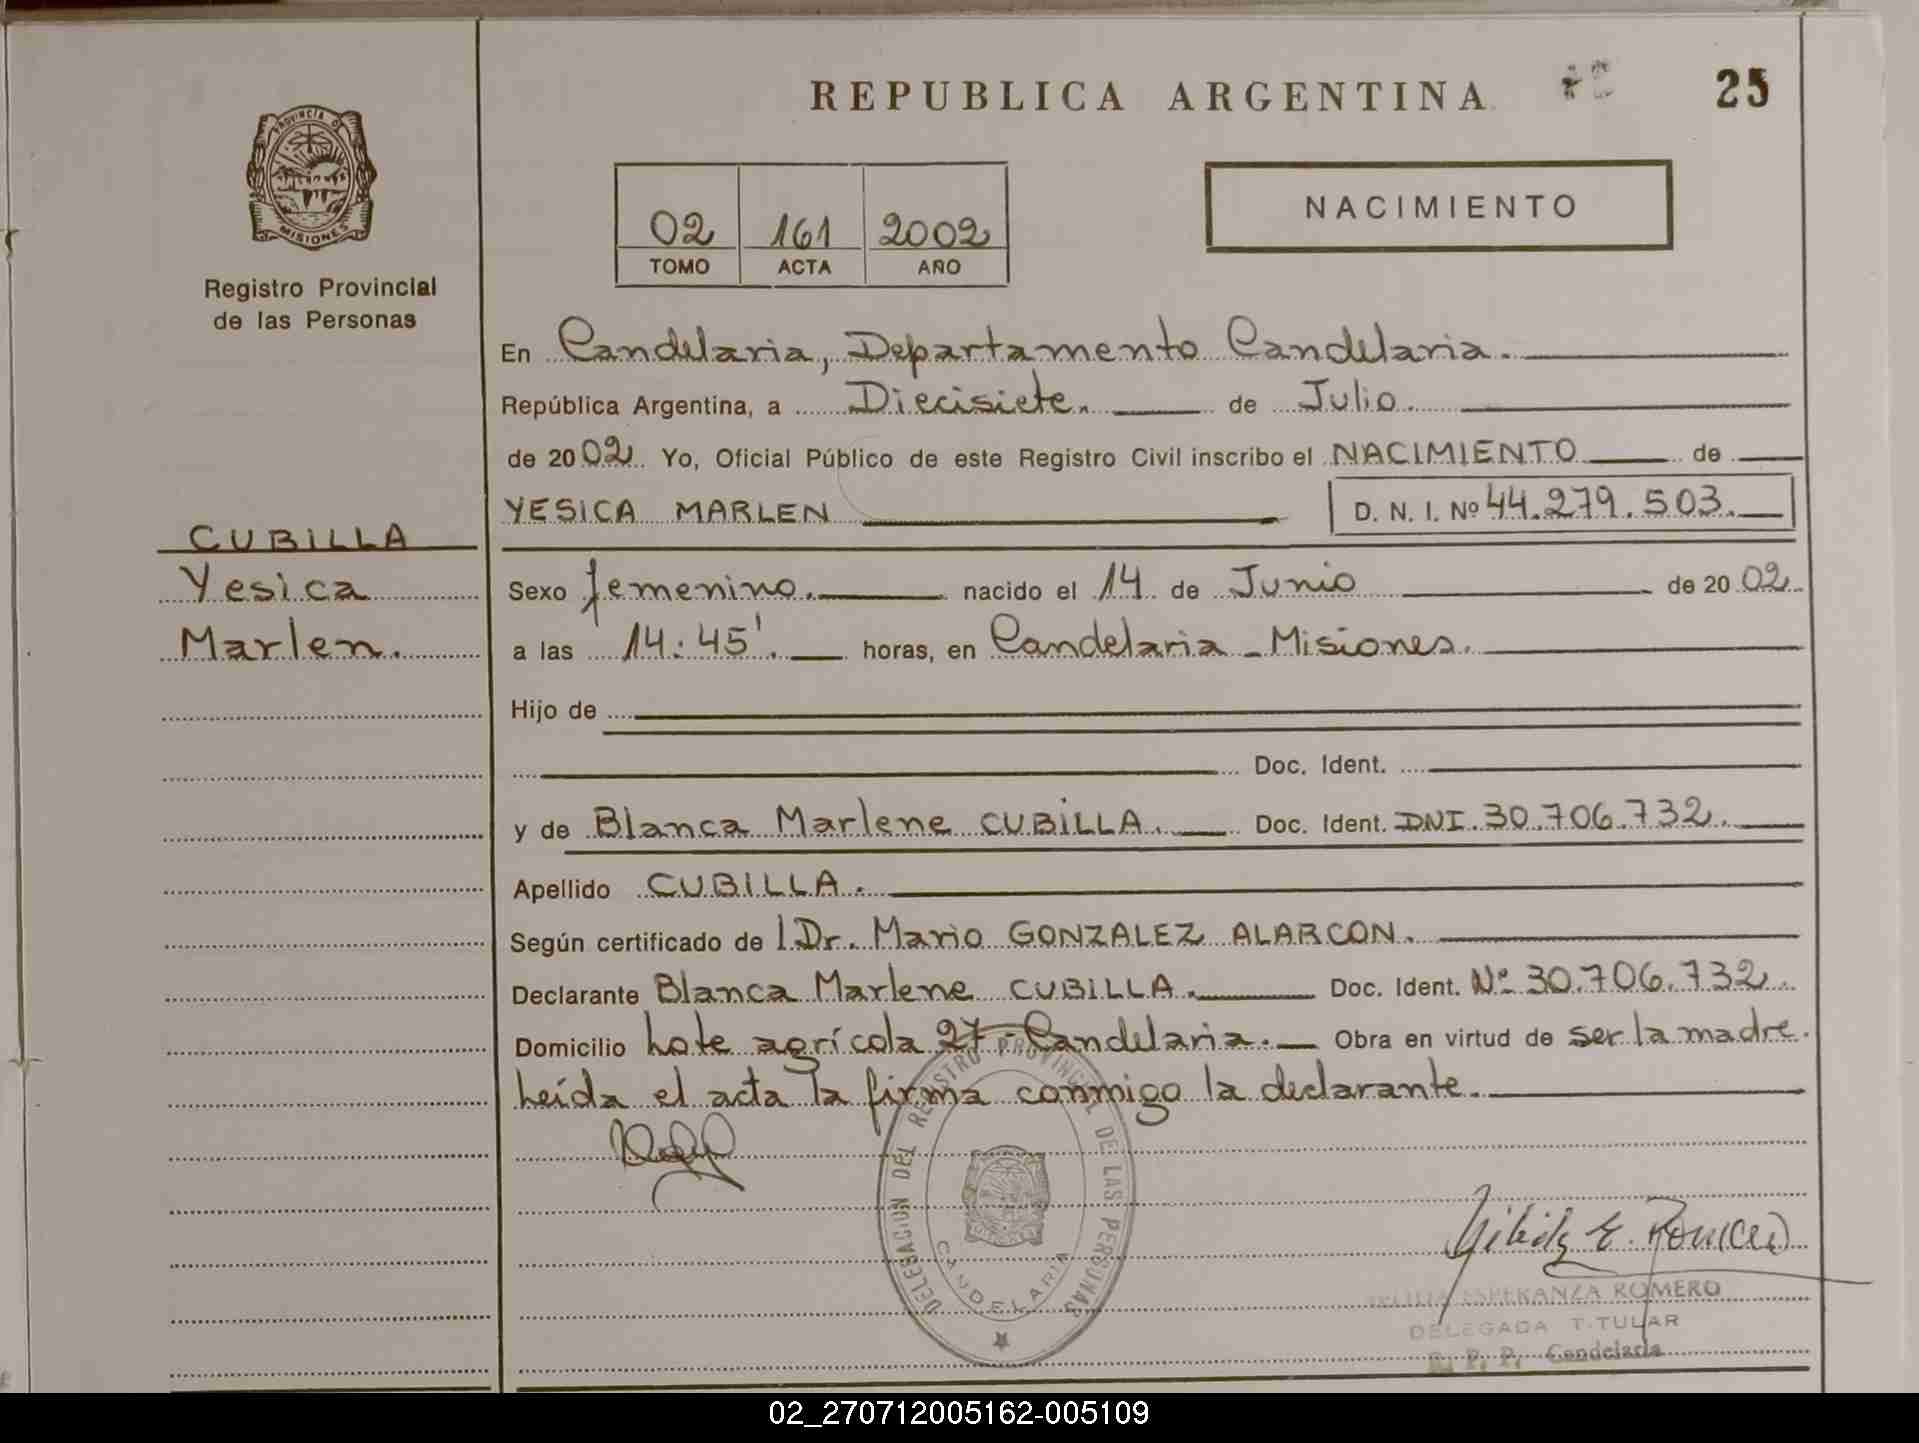 REPUBLICA ARGENTINA
25
PROVINCIA DE
MISIONES
Registro Provincial
de las Personas
02 161 2002
TOMO ACTA AÑO
NACIMIENTO
En Candelaria, Departamento Candelaria.
República Argentina, a Diecisiete. de Julio.
de 2002. Yo, Oficial Público de este Registro Civil inscribo el NACIMIENTO de
YESICA MARLEN D. N. I. Nº 44.279.503.
CUBILLA
Yesica
Marlen.
Sexo femenino. nacido el 14 de Junio de 2002
a las 14:45'. horas, en Candelaria - Misiones.
Hijo de
Doc. Ident.
y de Blanca Marlene CUBILLA. Doc. Ident. DNI. 30.706.732.
Apellido CUBILLA.
Según certificado de l Dr. Mario GONZALEZ ALARCON.
Declarante Blanca Marlene CUBILLA. Doc. Ident. Nº 30.706.732.
Domicilio Lote agrícola 27 - Candelaria. Obra en virtud de ser la madre.
Leída el acta la firma conmigo la declarante.
DELEGACION DEL REGISTRO PROVINCIAL DE LAS PERSONAS
CANDELARIA
E. Romero
ESPERANZA ROMERO
DELEGADA TITULAR
R. P. P. Candelaria
02_270712005162-005109